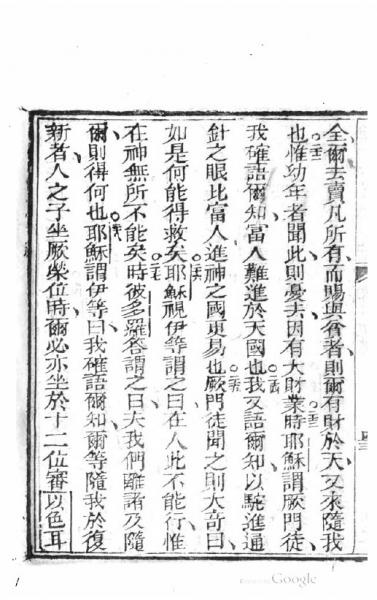 全爾去賣凡所有而賜與貧者則爾有財於天又來隨我
也惟幼年者聞此則憂去因有大財業時耶穌謂厥門徒
我確語爾知富人難進於天國也我又語爾知以駝進通
針之眼比富人進神之國更易也厥門徒聞之則大奇曰
如是何能得救矣耶穌視伊等謂之曰在人此不能行惟
在神無所不能矣時彼多羅答謂之曰夫我們離諸及隨
爾則得何也耶穌謂伊等曰我確語爾知爾等隨我於復
新者人之子坐厥榮位時爾必亦坐於十二位審以色耳
Google